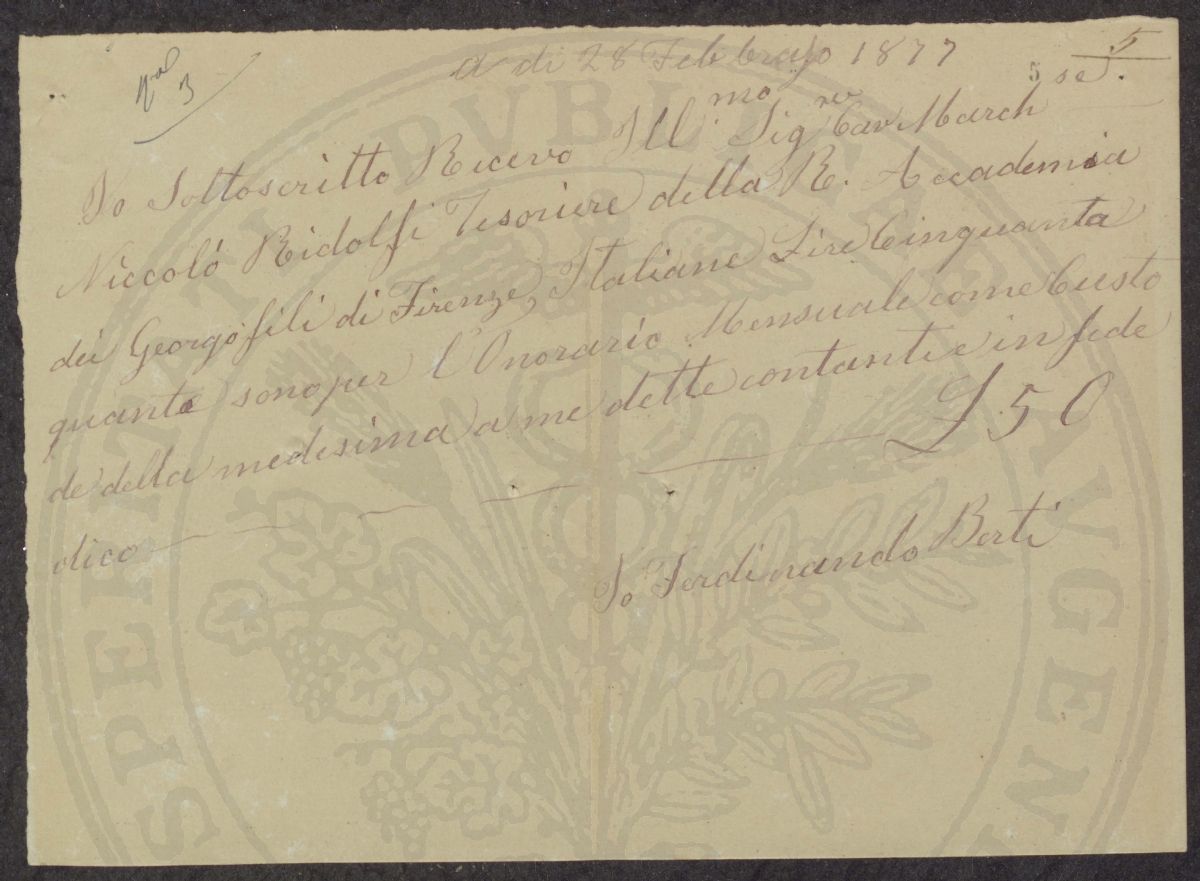 N.al 3
5
a di 28 Febbrajo 1877
5
Io Sottoscritto Ricevo Ill.mo Sig.re Cav March.se.
Niccoló Ridolfi Tesoriere della R. Accademia
dei Georgofili di Firenze, Italiane Lire Cinquanta
quante sono per l'Onorario Mensuale come Custo
de della medesima a me dette contanti e in fede
dico £50
Io Ferdinando Berti
PROSPERITATI PVBLICAE AVGENDAE